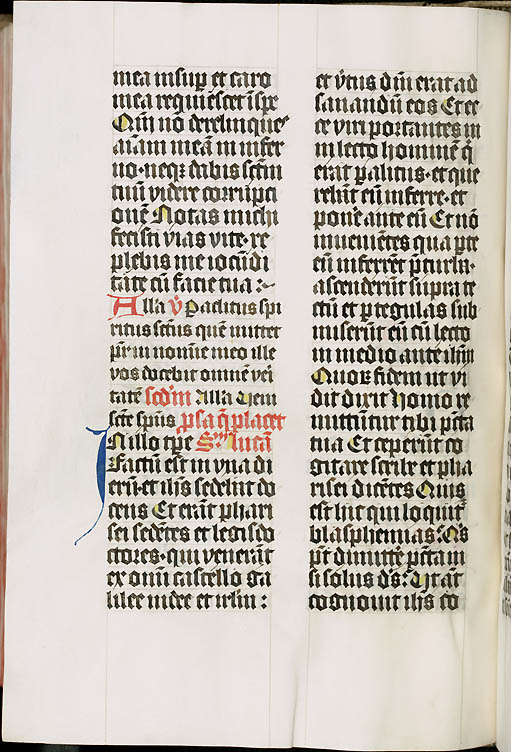 mea insup et caro
mea requiescet ī spe
Qm̄ nō derelinques
aīam meā in infer
no· neqꝫ dabis sc̄m
tuū videre corrupti
onē Notas michi
fecisti vias vite· re
plebis me iocūdi
tate cū facie tua :~
Alla v̄ Paclitus spi
ritus sc̄tus quē mittet
pr̄ in nomīe meo ille
vos docebit omnē veri
tatē scd̄m Alla Veni
sc̄te sp̄us psa q̄ placet
In illo tp̄e Sm̄ lucā
Factū est in vna di
erū· et ih̄s sedebat do
cens Et erāt phari
sei sedētes et legis do
ctores· qui venerāt
ex om̄i castello ga
lilee iudee et irlm̄ :
et v̄tus dn̄i erat ad
sanandū eos Et ec
ce viri portantes in
in lecto hominē q̄
erat palitus· et que
rebāt eū inferre· et
ponē ante eū Et nō
inueniētes qua pte
eū inferrēt p̄ turba·
ascenderūt supra te
ctū et p tegulas sub
miserūt eū cū lecto
in medio ante ih̄m
Quoꝝ fidem ut vi
dit dixit homo re
mittūtur tibi pctā
tua Et ceperūt co
gitare scribe et pha
risei dicētes Quis
est hic qui loquit
blasphemias· Qs
pt̄ dimittē pctā ni
si solus ds̄· Vt āt
cognouit ih̄s co